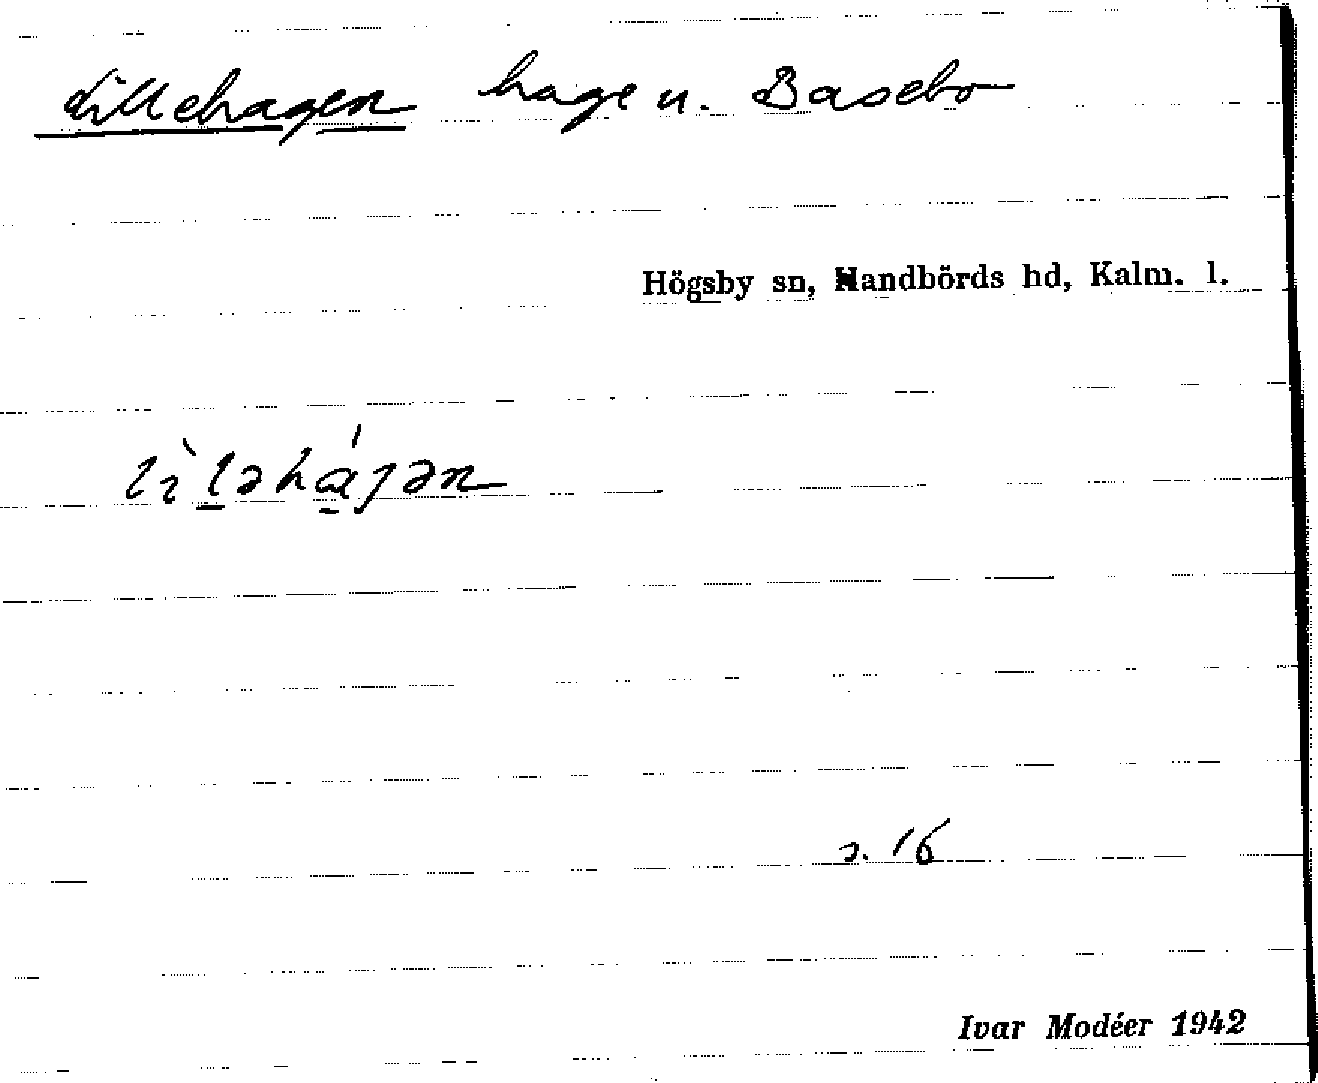 Lillehagen hage u. Basebo
Högsby sn, Handbörds hd, Kalm. l.
lìləhájən
s. 16
Ivar Modéer 1942